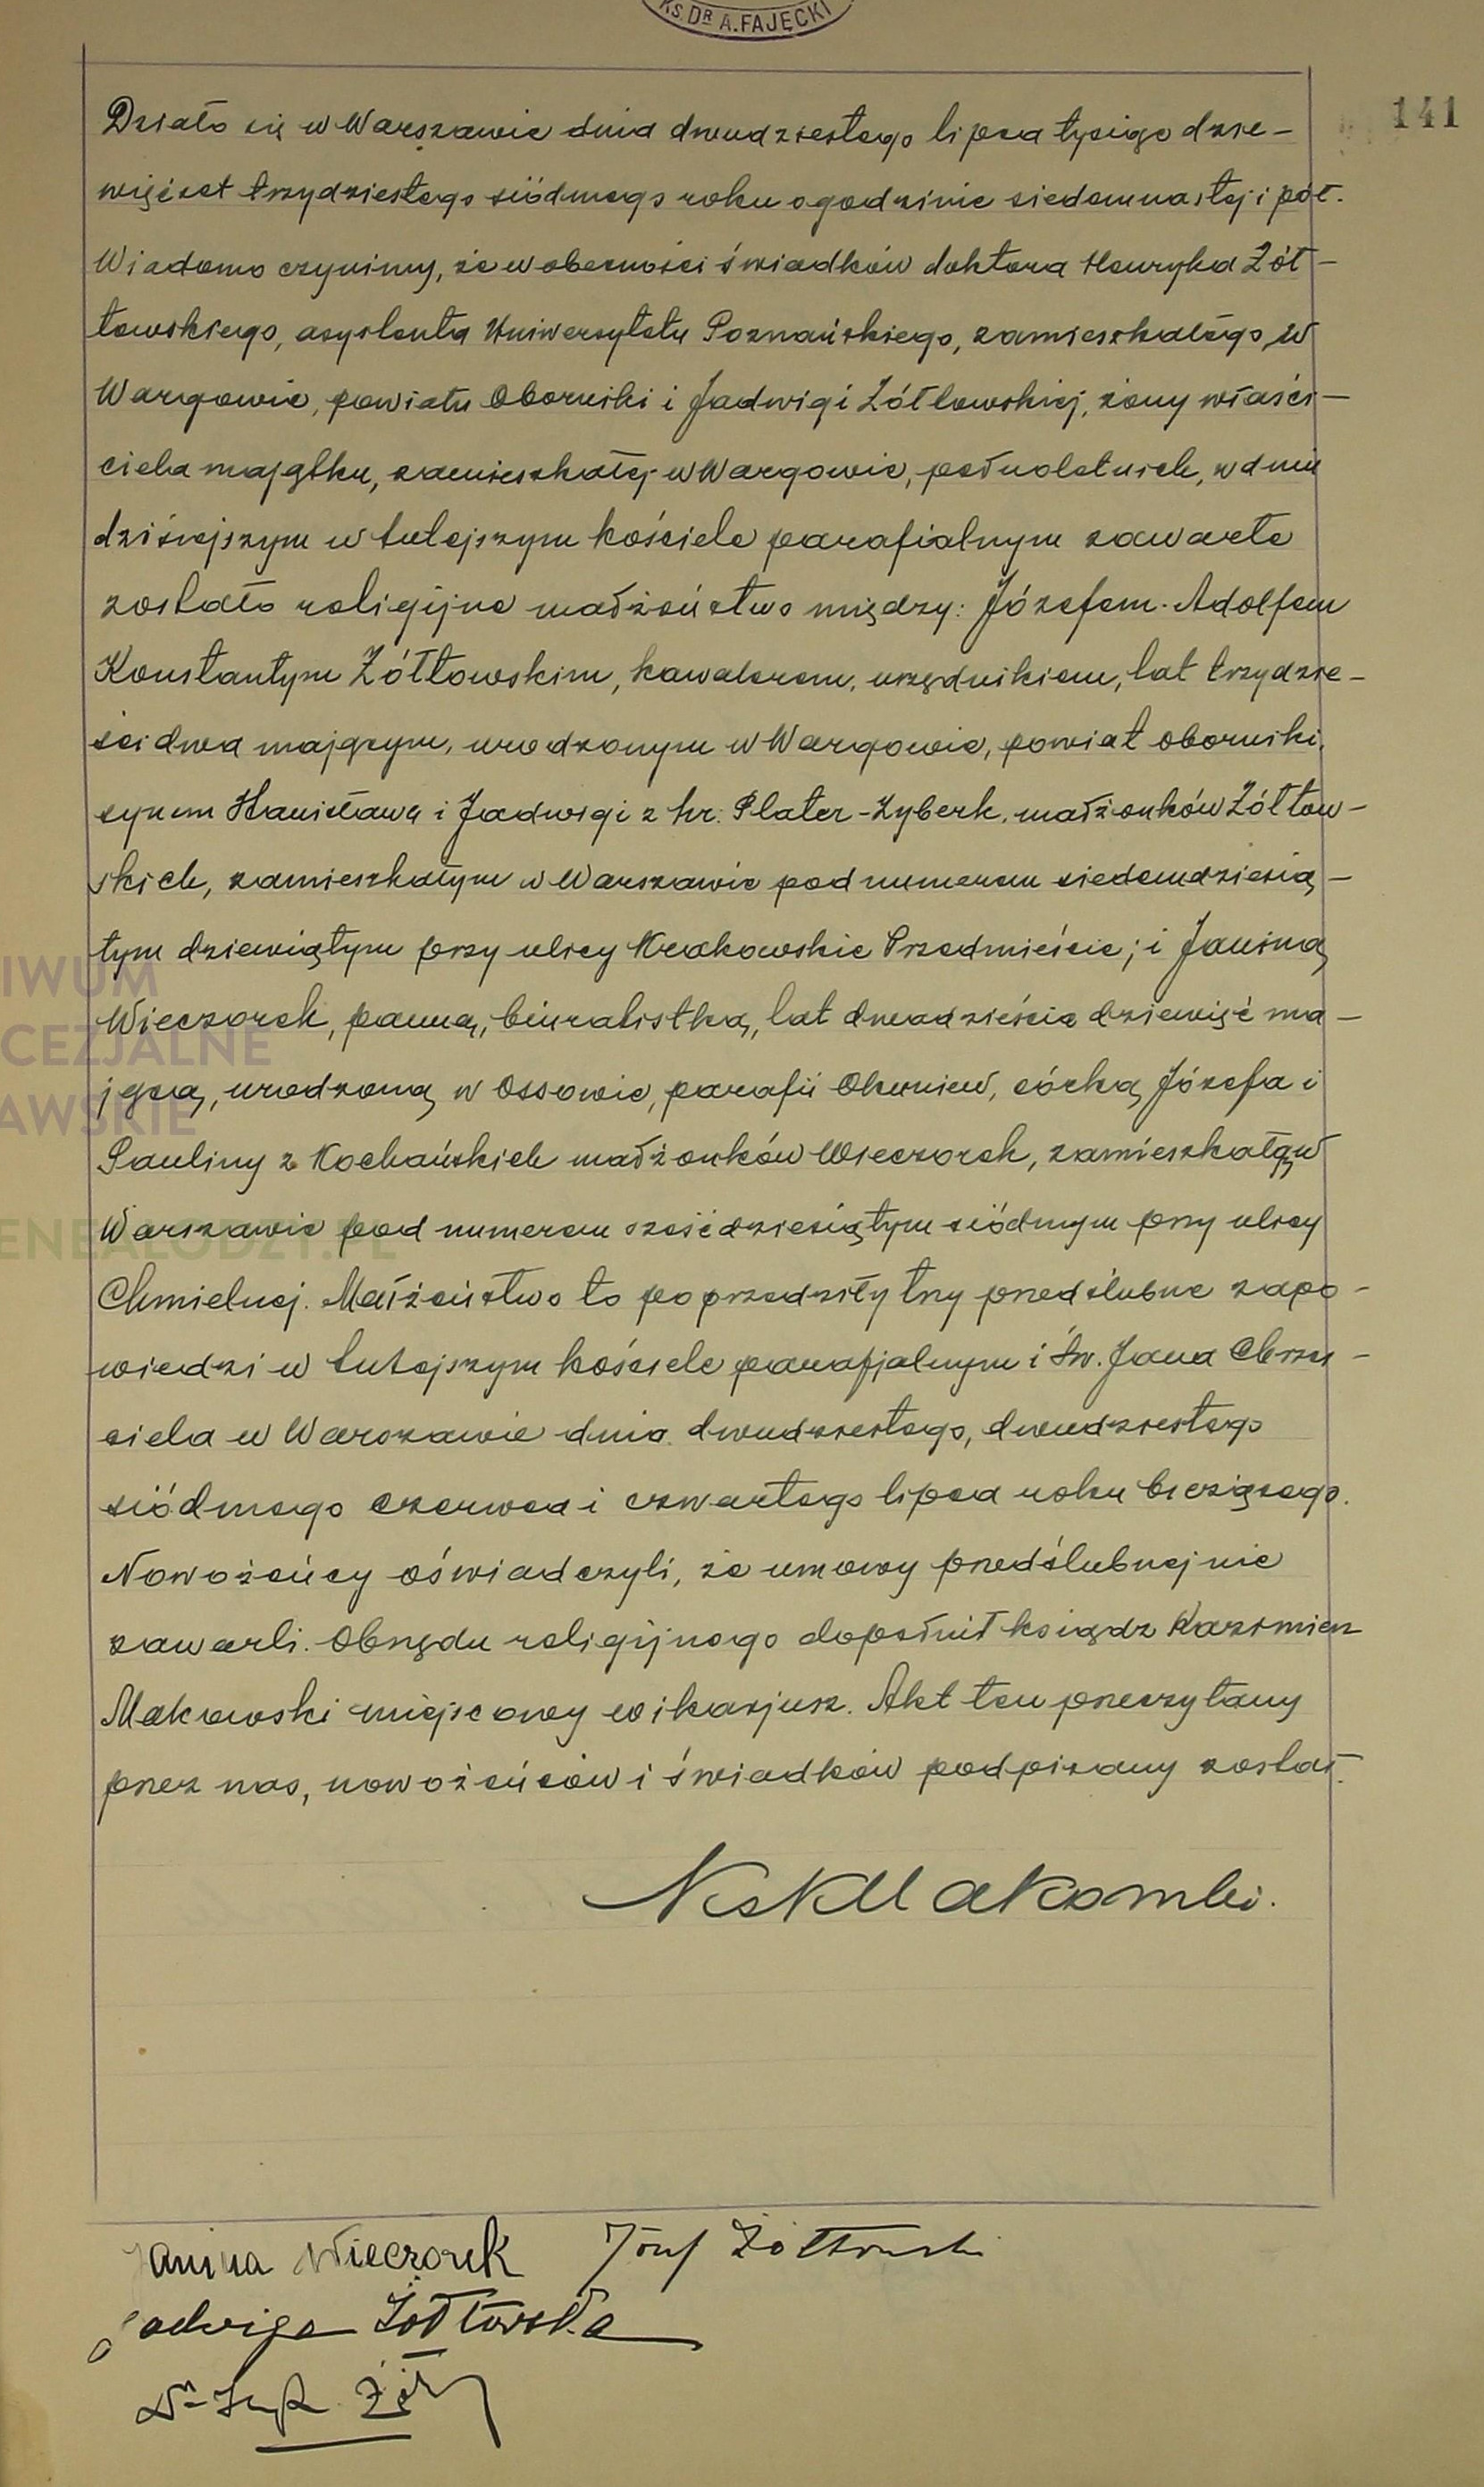 KS. DR A. FAJĘCKI
141
Działo się w Warszawie dnia dwudziestego lipca tysiąc dzie-
więćset trzydziestego siódmego roku o godzinie siedemnastej i pół.
Wiadomo czynimy, że w obecności świadków doktora Henryka Żół-
towskiego, asystenta Uniwersytetu Poznańskiego, zamieszkałego w
Wargowie, powiatu Obornicki i Jadwigi Żółtowskiej, żony właści-
ciela majątku, zamieszkałej w Wargowie, pełnoletnich, w dniu
dzisiejszym w tutejszym kościele parafialnym zawarte
zostało religijne małżeństwo między: Józefem-Adolfem
Konstantym Żółtowskim, kawalerem, urzędnikiem, lat trzydzie-
ści dwa mającym, urodzonym w Wargowie, powiat obornicki,
synem Stanisława i Jadwigi z hr. Plater-Zyberk, małżonków Żółtow-
skich, zamieszkałym w Warszawie pod numerem siedemdziesią-
tym dziewiątym przy ulicy Krakowskie Przedmieście; i Janiną
Wieczorek, panną, biuralistką, lat dwadzieścia dziewięć ma-
jącą, urodzoną w Ossowie, parafii Okuniew, córką Józefa i
Pauliny z Kochańskich małżonków Wieczorek, zamieszkałą w
Warszawie pod numerem sześćdziesiątym siódmym przy ulicy
Chmielnej. Małżeństwo to poprzedziły trzy przedślubne zapo-
wiedzi w tutejszym kościele parafjalnym i Św. Jana Chrzci-
ciela w Warszawie dnia dwudziestego, dwudziestego
siódmego czerwca i czwartego lipca roku bieżącego.
Nowożeńcy oświadczyli, że umowy przedślubnej nie
zawarli. Obrzędu religijnego dopełnił ksiądz Kazimierz
Makowski miejscowy wikarjusz. Akt ten przeczytany
przez nas, nowożeńców i świadków podpisany został.
Ks K Makowski.
Janina Wieczorek Józef Żółtowski
Jadwiga Żółtowska
IWUM
CEZJALNE
AWSKIE
ENEALODZY.PL